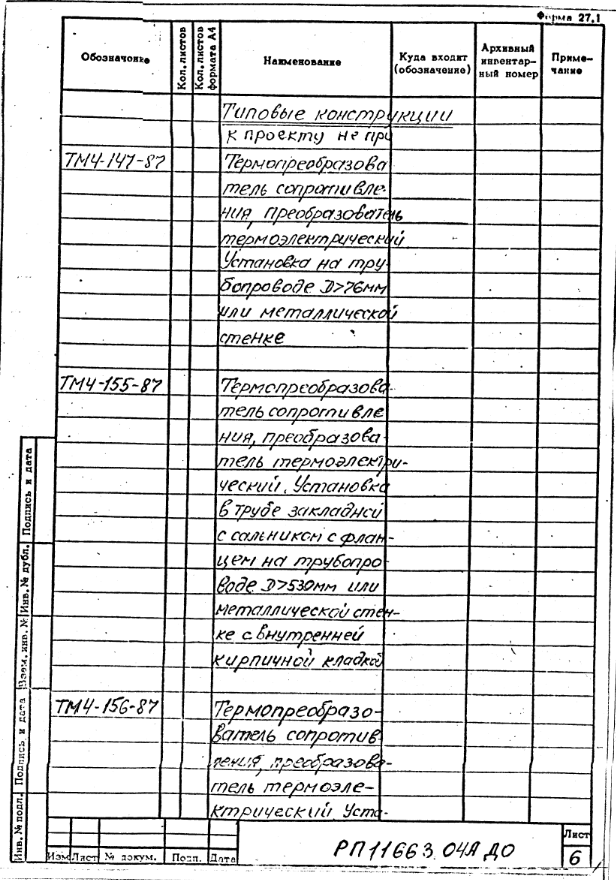 Форма 27,1
Обозначение Кол. листов Кол. листов формата А4 Наименование Куда входит (обозначение) Архивный инвентарный номер Примечание
Типовые конструкции
к проекту не при
ТМ4-147-87 Термопреобразова
тель сопротивле-
ния, преобразователь
термоэлектрический
Установка на тру-
бопроводе D>76мм
или металлической
стенке
ТМ4-155-87 Термопреобразова-
тель сопротивле
ния, преобразова-
тель термоэлектри-
ческий. Установка
в трубе закладной
с сальником с флан-
цем на трубопро
воде D>530мм или
металлической стен-
ке с внутренней
кирпичной кладкой
ТМ4-156-87 Термопреобразо-
ватель сопротив
ления, преобразова-
тель термоэле-
ктрический Уста-
Инв. № подл. Подпись и дата Взам. инв. № Инв. № дубл. Подпись и дата
Изм Лист № докум. Подп. Дата
РП11663.04А ДО
Лист
6